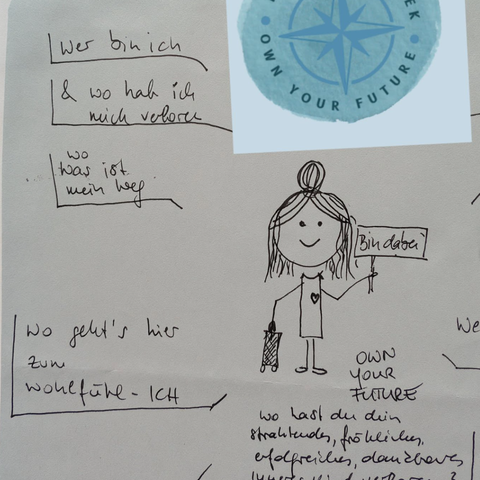 wer bin ich
& wo hab ich
mich verloren
wo
was ist
mein Weg
EK
OWN YOUR FUTURE
Bin dabei
wo geht's hier
zum
Wohlfühl-ICH
We
OWN
YOUR
FUTURE
wo hast du dein
strahlendes, fröhliches,
erfolgreiches, dankbares